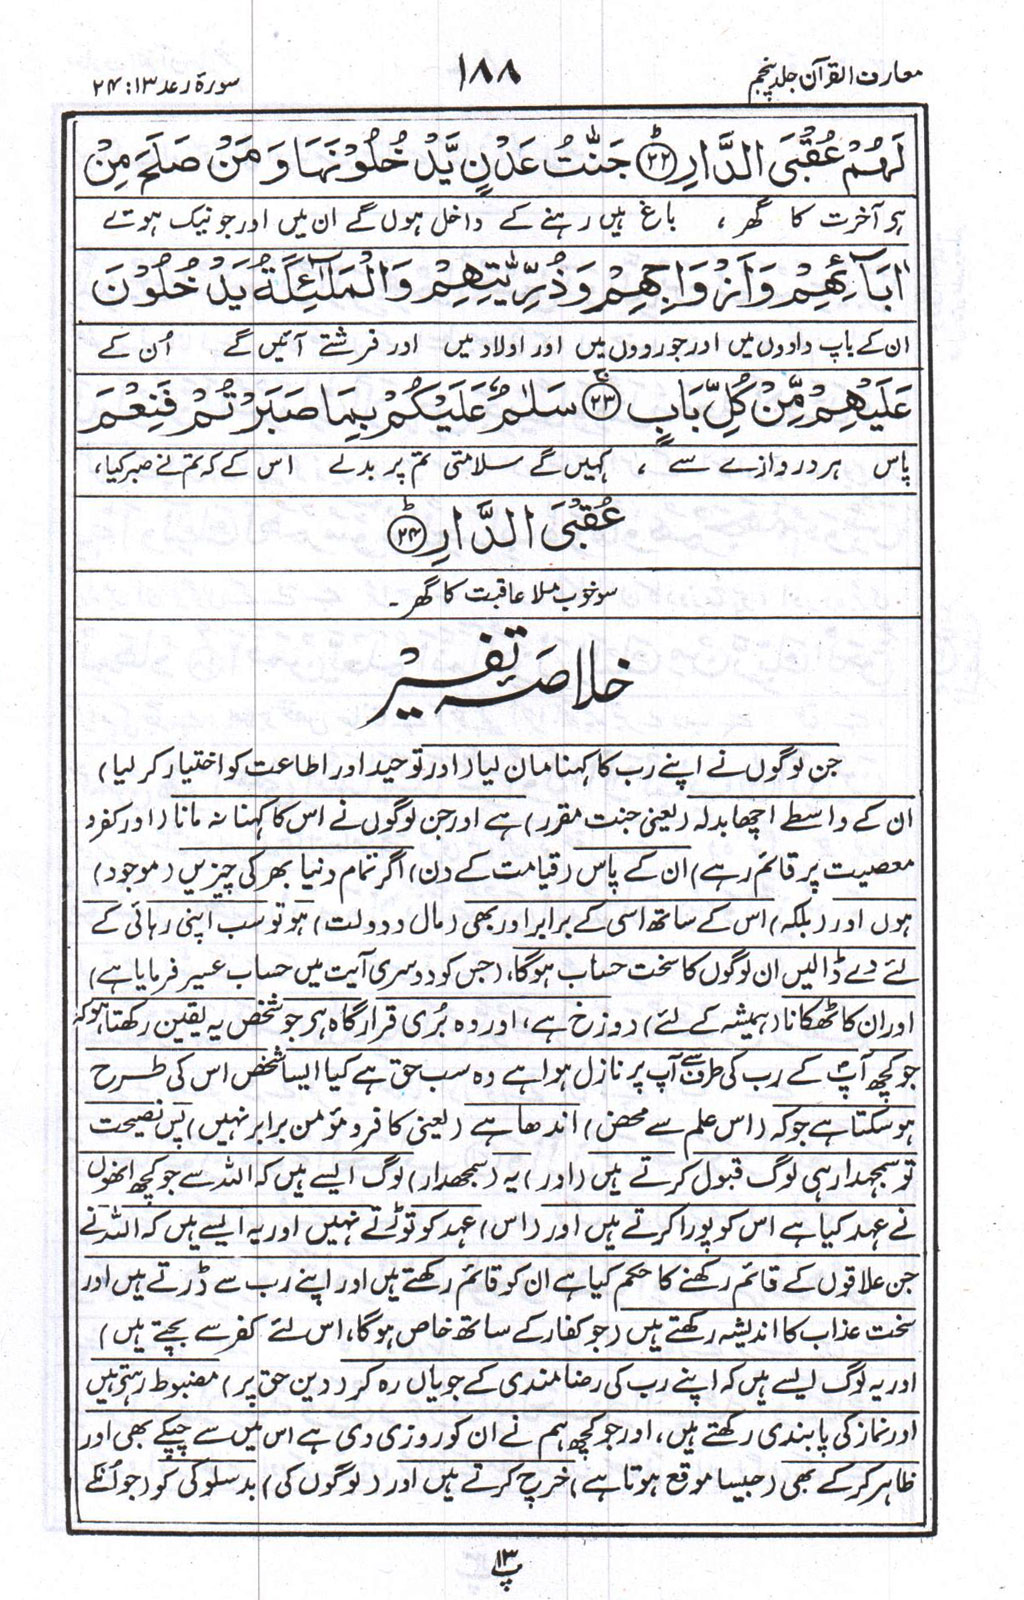 معارف القرآن جلد پنجم
۱۸۸
سورۃ رعد ۱۳: ۲۴
لَهُمْ عُقْبَى الدَّارِ ﴿۲۲﴾ جَنّٰتُ عَدْنٍ يَّدْخُلُوْنَهَا وَمَنْ صَلَحَ مِنْ
ہے آخرت کا گھر، باغ ہیں رہنے کے داخل ہوں گے ان میں اور جو نیک ہوئے
اٰبَآئِهِمْ وَاَزْوَاجِهِمْ وَذُرِّيّٰتِهِمْ وَالْمَلٰٓئِكَةُ يَدْخُلُوْنَ
ان کے باپ دادوں میں اور جورووں میں اور اولاد میں اور فرشتے آئیں گے اُن کے
عَلَيْهِمْ مِّنْ كُلِّ بَابٍ ﴿۲۳﴾ سَلٰمٌ عَلَيْكُمْ بِمَا صَبَرْتُمْ فَنِعْمَ
پاس ہر دروازے سے، کہیں گے سلامتی تم پر بدلے اس کے کہ تم نے صبر کیا،
عُقْبَى الدَّارِ ﴿۲۴﴾
سو خوب ملا عاقبت کا گھر۔
خلاصہ تفسیر
جن لوگوں نے اپنے رب کا کہنا مان لیا (اور توحید اور اطاعت کو اختیار کر لیا)
ان کے واسطے اچھا بدلہ (یعنی جنت مقرر) ہے اور جن لوگوں نے اس کا کہنا نہ مانا (اور کفر و
معصیت پر قائم رہے) ان کے پاس (قیامت کے دن) اگر تمام دنیا بھر کی چیزیں (موجود)
ہوں اور (بلکہ) اس کے ساتھ اسی کے برابر اور بھی (مال و دولت) ہو تو سب اپنی رہائی کے
لئے دے ڈالیں ان لوگوں کا سخت حساب ہوگا، (جس کو دوسری آیت میں حساب عسیر فرمایا ہے)
اور ان کا ٹھکانا (ہمیشہ کے لئے) دوزخ ہے، اور وہ بُری قرارگاہ ہے جو شخص یہ یقین رکھتا ہو کہ
جو کچھ آپ کے رب کی طرف سے آپ پر نازل ہوا ہے وہ سب حق ہے کیا ایسا شخص اس کی طرح
ہو سکتا ہے جو کہ (اس علم سے محض) اندھا ہے (یعنی کافر و مؤمن برابر نہیں) پس نصیحت
تو سمجھدار ہی لوگ قبول کرتے ہیں (اور) یہ (سمجھدار) لوگ ایسے ہیں کہ اللہ سے جو کچھ انھوں
نے عہد کیا ہے اس کو پورا کرتے ہیں اور (اس) عہد کو توڑتے نہیں اور یہ ایسے ہیں کہ اللہ نے
جن علاقوں کے قائم رکھنے کا حکم کیا ہے ان کو قائم رکھتے ہیں اور اپنے رب سے ڈرتے ہیں اور
سخت عذاب کا اندیشہ رکھتے ہیں (جو کفار کے ساتھ خاص ہوگا، اس لئے کفر سے بچتے ہیں)
اور یہ لوگ ایسے ہیں کہ اپنے رب کی رضامندی کے جویاں رہ کر (دین حق پر) مضبوط رہتے ہیں
اور نماز کی پابندی رکھتے ہیں، اور جو کچھ ہم نے ان کو روزی دی ہے اس میں سے چپکے بھی اور
ظاہر کر کے بھی (جیسا موقع ہوتا ہے) خرچ کرتے ہیں اور (لوگوں کی) بدسلوکی کو (جو اُنکے
پ ۱۳